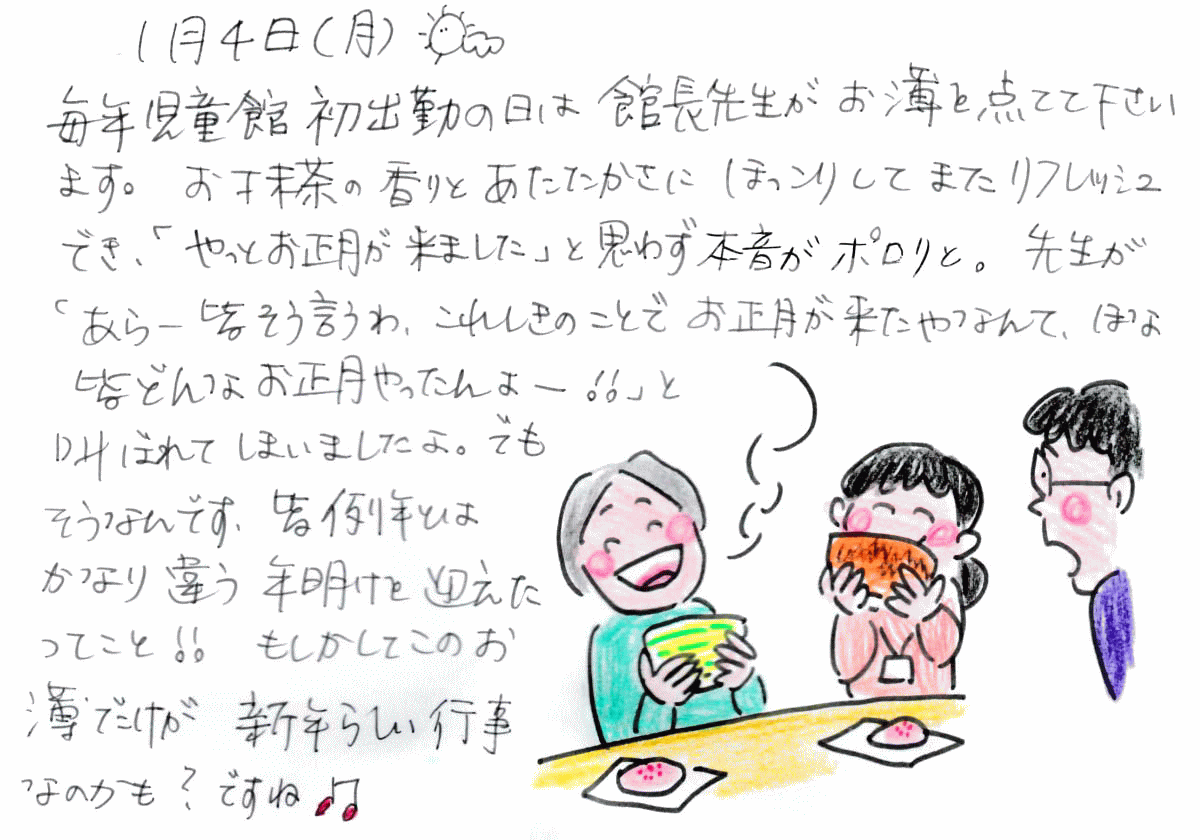 1月4日(月)
毎年児童館 初出勤の日は 館長先生が お薄を点てて下さい
ます。 お抹茶の香りと あたたかさに ほっこりして またリフレッシュ
でき、「やっとお正月が 来ました」と思わず本音がポロリと。 先生が
「あらー皆そう言うわ、これしきのことで お正月が来たやなんて、ほな
皆どんなお正月やったんよー!!」と
叫ばれて しまいましたよ。でも
そうなんです、皆 例年とは
かなり 違う 年明けを 迎えた
ってこと!! もしかしてこのお
薄だけが 新年らしい 行事
なのかも? ですね♫